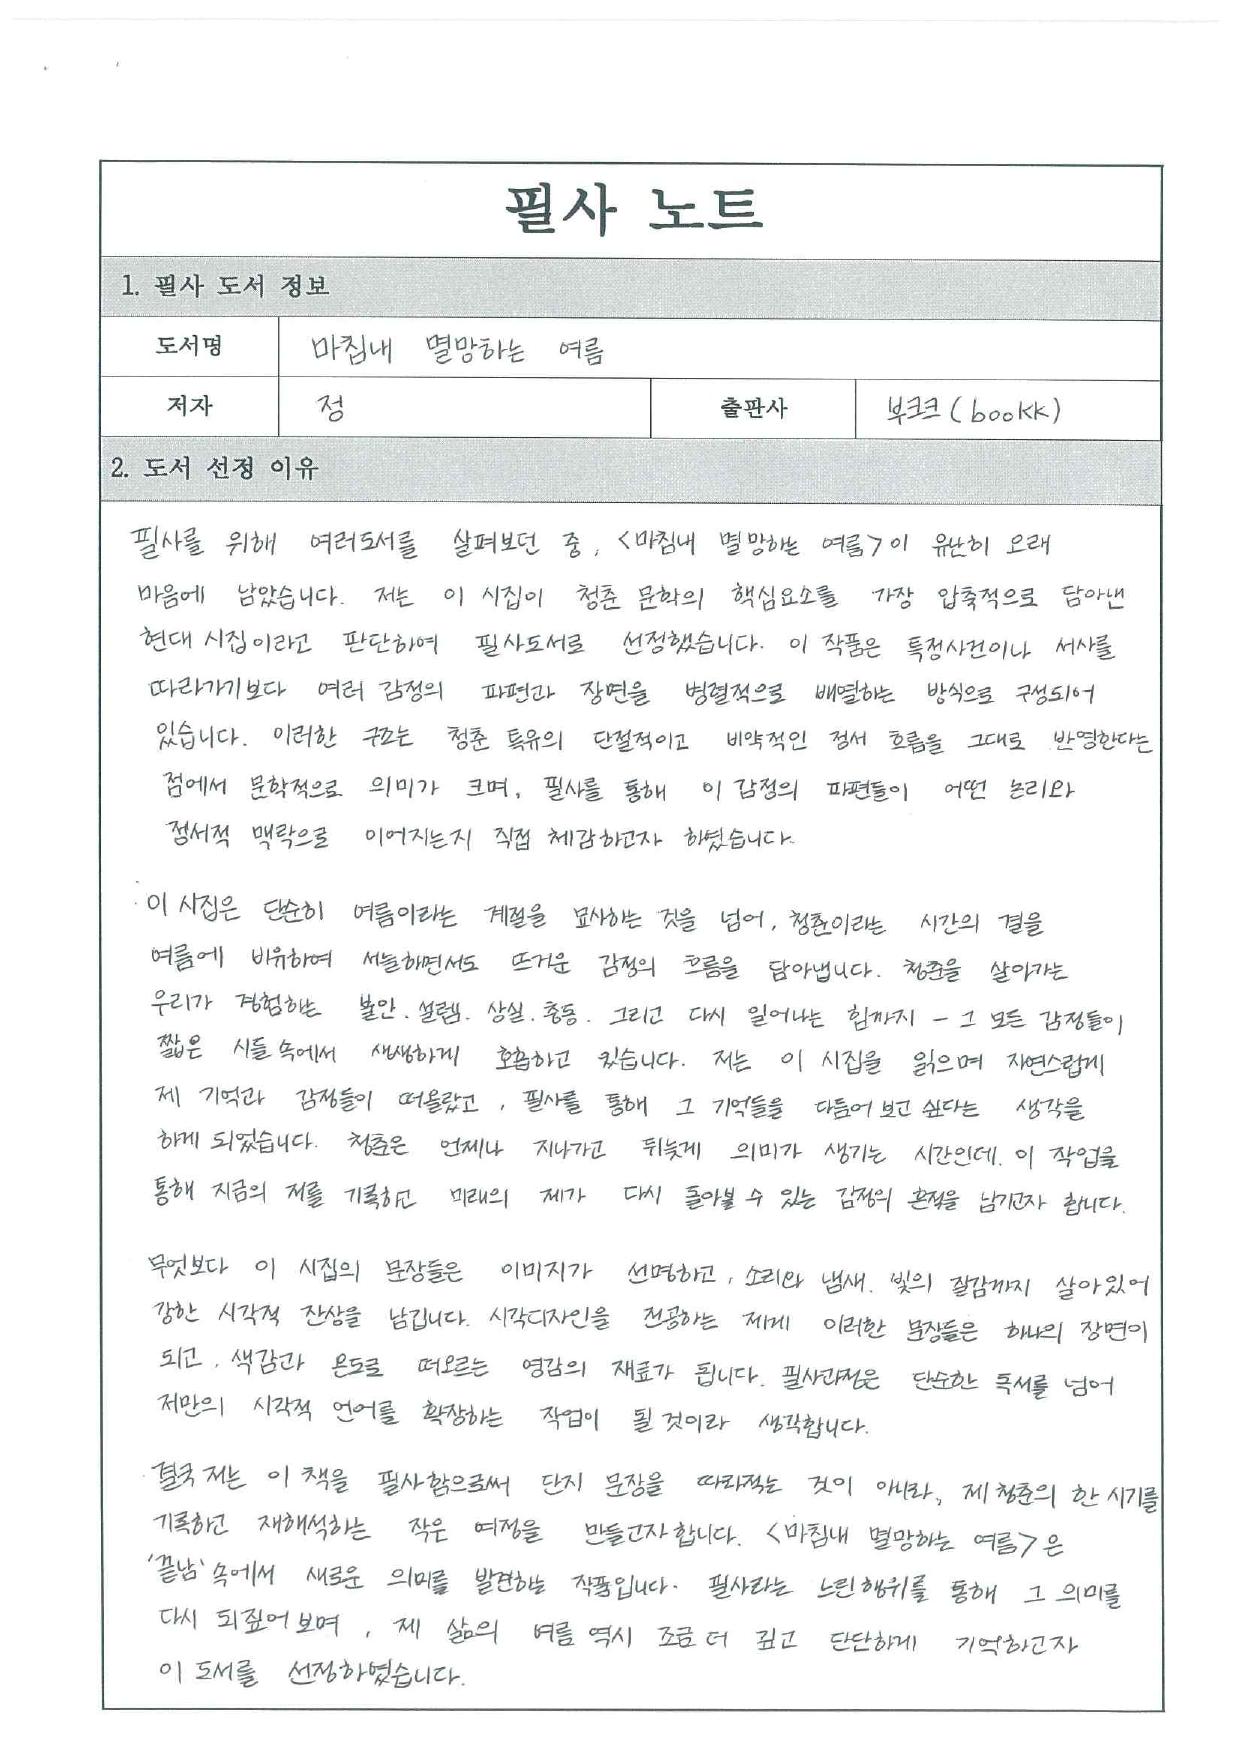 필사 노트
1. 필사 도서 정보
도서명 마침내 멸망하는 여름
저자 정 출판사 부크크(bookk)
2. 도서 선정 이유
필사를 위해 여러도서를 살펴보던 중, <마침내 멸망하는 여름>이 유난히 오래
마음에 남았습니다. 저는 이 시집이 청춘 문학의 핵심요소를 가장 압축적으로 담아낸
현대 시집이라고 판단하여 필사도서로 선정했습니다. 이 작품은 특정사건이나 서사를
따라가기보다 여러 감정의 파편과 장면을 병렬적으로 배열하는 방식으로 구성되어
있습니다. 이러한 구조는 청춘 특유의 단절적이고 비약적인 정서 흐름을 그대로 반영한다는
점에서 문학적으로 의미가 크며, 필사를 통해 이 감정의 파편들이 어떤 논리와
정서적 맥락으로 이어지는지 직접 체감하고자 하였습니다.
이 시집은 단순히 여름이라는 계절을 묘사하는 것을 넘어, 청춘이라는 시간의 결을
여름에 비유하여 서늘하면서도 뜨거운 감정의 흐름을 담아냅니다. 청춘을 살아가는
우리가 경험하는 불안. 설렘. 상실. 충동. 그리고 다시 일어나는 힘까지 - 그 모든 감정들이
짧은 시들 속에서 생생하게 호흡하고 있습니다. 저는 이 시집을 읽으며 자연스럽게
제 기억과 감정들이 떠올랐고, 필사를 통해 그 기억들을 다듬어 보고 싶다는 생각을
하게 되었습니다. 청춘은 언제나 지나가고 뒤늦게 의미가 생기는 시간인데. 이 작업을
통해 지금의 저를 기록하고 미래의 제가 다시 돌아볼 수 있는 감정의 흔적을 남기고자 합니다.
무엇보다 이 시집의 문장들은 이미지가 선명하고, 소리와 냄새. 빛의 질감까지 살아있어
강한 시각적 잔상을 남깁니다. 시각디자인을 전공하는 제게 이러한 문장들은 하나의 장면이
되고, 색감과 온도로 떠오르는 영감의 재료가 됩니다. 필사과정은 단순한 독서를 넘어
저만의 시각적 언어를 확장하는 작업이 될 것이라 생각합니다.
결국 저는 이 책을 필사함으로써 단지 문장을 따라적는 것이 아니라, 제 청춘의 한 시기를
기록하고 재해석하는 작은 여정을 만들고자합니다. <마침내 멸망하는 여름>은
'끝남' 속에서 새로운 의미를 발견하는 작품입니다. 필사라는 느린행위를 통해 그 의미를
다시 되짚어보며, 제 삶의 여름 역시 조금 더 깊고 단단하게 기억하고자
이 도서를 선정하였습니다.